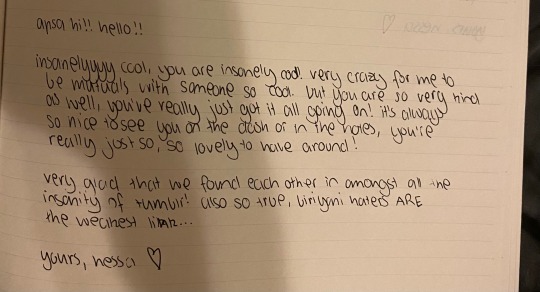 apsa hi!! hello!!
insanelyyyy cool, you are insanely cool. very crazy for me to
be mutuals with someone so cool. but you are so very kind
as well, you've really just got it all going on! it's always
so nice to see you on the dash or in the notes, you're
really just so, so lovely to have around!
very glad that we found each other in amongst all the
insanity of tumblr! also so true, biriyani haters ARE
the weakest link...
yours, nessa ♡